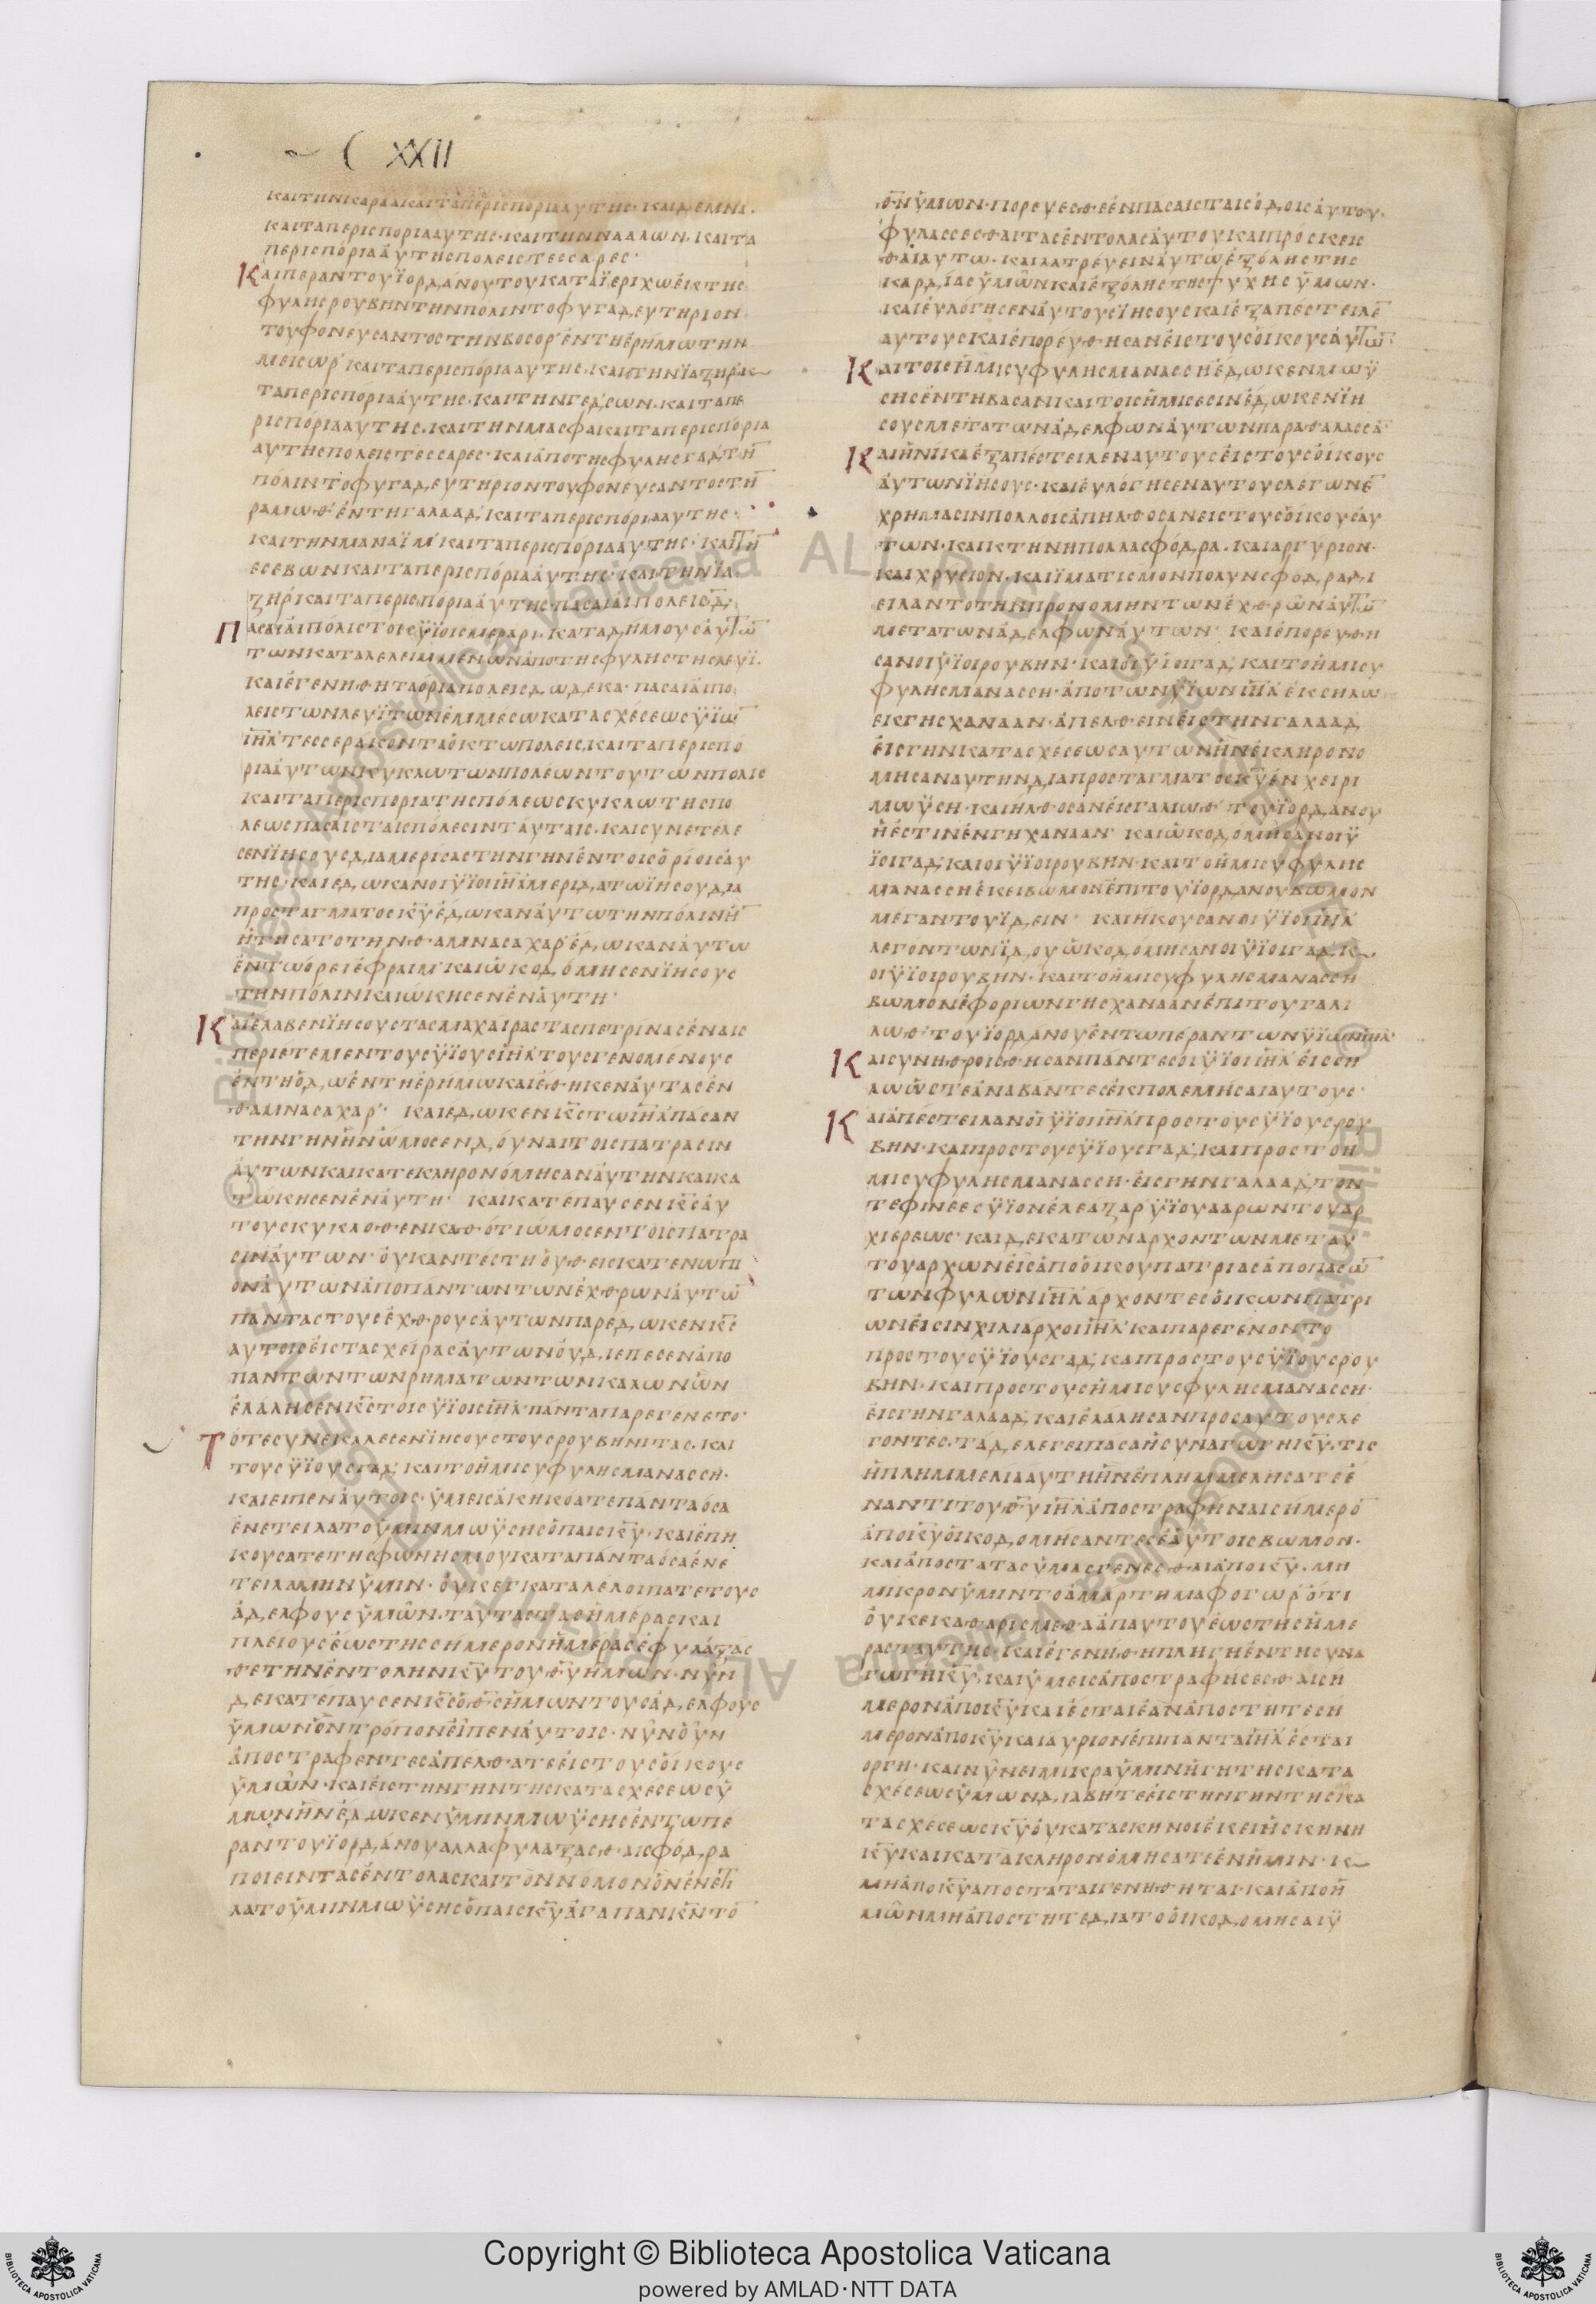 XXII
καιτηνκαραακαιταπερισποριααυτης· καιδεμνα·
καιταπερισποριααυτης· καιτηνναλων· καιτα
περισποριααυτηςπολειςτεσσαρες·
Καιπεραντουϊορδανουτουκαταϊεριχωεκτης
φυληςρουβηντηνπολιντοφυγαδευτηριον
τουφονευσαντοςτηνβοσορ'εντηερημωτην
μεισωρ'καιταπερισποριααυτης· καιτηνϊαζηρκαι
ταπερισποριααυτης· καιτηνγεδσων· καιταπε
ρισποριααυτης· καιτηνμασφακαιταπερισπορια
αυτηςπολειςτεσσαρες· καιαποτηςφυληςγαδτη̅
πολιντοφυγαδευτηριοντουφονευσαντοςτη̅
ραμωθ'εντηγαλααδ'καιταπερισποριααυτης·
καιτηνμαναϊμ'καιταπερισποριααυτης· καιτη̅
εσεβωνκαιταπερισποριααυτης· καιτηνϊα
ζηρ'καιταπερισποριααυτηςπασαιαιπολειςδ·
Πασαιαιπολιςτοιςϋϊοιςμεραρι· καταδημουςαυτω̅
τωνκαταλελειμμενωναποτηςφυληςτηςλευϊ·
καιεγενηθηταοριαπολειςδωδεκα· πασαιαιπο
λειςτωνλευϊτωνεμμεσωκατασχεσεωςϋϊω̅
ι̅η̅λ̅τεσσερακονταοκτωπολεις, καιταπερισπο
ριααυτωνκυκλωτωνπολεωντουτωνπολις
καιταπερισποριατηςπολεωςκυκλωτηςπο
λεωςπασαιςταιςπολεσινταυταις· καισυνετελε
σενϊησουςδιαμερισαςτηνγηνεντοιςοριοιςαυ
της· καιεδωκανοιϋϊοιι̅η̅λ̅μεριδατωϊησουδια
προσταγματοςκ̅υ̅εδωκαναυτωτηνπολινη̅
ητησατοτηνθαμνασαχαρ'εδωκαναυτω
εντωορειεφραιμ'καιωκοδομησενϊησους
τηνπολινκαιωκησενεναυτη·
Καιελαβενϊησουςταςμαχαιραςταςπετριναςεναις
περιετεμεντουςϋϊουςι̅η̅λ̅τουςγενομενους
εντηοδωεντηερημωκαιεθηκεναυταςεν
θαμνασαχαρ'· καιεδωκενκ̅ς̅τωι̅η̅λ̅πασαν
τηνγηνηνωμοσενδουναιτοιςπατρασιν
αυτωνκαικατεκληρονομησαναυτηνκαικα
τωκησενεναυτη· καικατεπαυσενκ̅ς̅αυ
τουςκυκλοθενκαθ'οτιωμοσεντοιςπατρα
σιναυτων· ουκαντεστηουθειςκατενωπι
οναυτωναποπαντωντωνεχθρωναυτω̅
πανταςτουςεχθρουςαυτωνπαρεδωκενκ̅ς̅
αυτοιςειςταςχειραςαυτωνουδιεπεσεναπο
παντωντωνρηματωντωνκαλωνων
ελαλησενκ̅ς̅τοιςϋϊοιςι̅η̅λ̅πανταπαρεγενετο·
Τοτεσυνεκαλεσενϊησουςτουςρουβηνιτας· και
τουςϋϊουςγαδ'καιτοημισυφυληςμανασση·
καιειπεναυτοις· υμειςακηκοατεπανταοσα
ενετειλατουμινμωϋσηςοπαιςκ̅υ̅· καιεπη
κουσατετηςφωνηςμουκαταπανταοσαενε
τειλαμηνυμιν· ουκεγκαταλελοιπατετους
αδελφουςυμων· ταυταςταςημεραςκαι
πλειουςεωςτηςσημερονημεραςεφυλαξας
θετηνεντοληνκ̅υ̅τουθ̅υ̅ημων· νυν
δεκατεπαυσενκ̅ς̅οθ̅ς̅ημωντουςαδελφους
υμωνοντροπονειπεναυτοις· νυνουν
αποστραφεντεςαπελθατεειςτουςοικους
υμων· καιειςτηνγηντηςκατασχεσεωςυ
μωνηνεδωκενυμινμωϋσηςεντωπε
ραντουϊορδανουαλλαφυλαξασθαισφοδρα
ποιειντασεντολαςκαιτοννομονονενετι
λατουμινμωϋσηςοπαιςκ̅υ̅αγαπανκ̅ν̅το̅
θ̅ν̅υμων· πορευεσθεενπασαιςταιςοδοιςαυτου·
φυλασσεσθαιτασεντολασαυτουκαιπροσκεισ
θαιαυτω· καιλατρευειναυτωεξοληςτης
καρδιασυμωνκαιεξοληςτηςψυχηςυμων·
καιευλογησεναυτουςϊησουςκαιεξαπεστειλε̅
αυτουςκαιεπορευθησανειςτουςοικουςαυτω̅·
Καιτοισημισυφυληςμανασσηεδωκενμωϋ
σηςεντηβασανκαιτοιςημισεσινεδωκενϊη
σουςμετατωναδελφωναυτωνπαραθαλασσα̅
Καιηνικαεξαπεστειλεναυτουςειςτουςοικους
αυτωνϊησους· καιευλογησεναυτουςλεγωνε̅
χρημασινπολλοιςαπηλθοσανειςτουςοικουςαυ
των· καικτηνηπολλασφοδρα· καιαργυριον·
καιχρυσιον· καιϊματισμονπολυνσφοδραδι
ειλαντοτηνπρονομηντωνεχθρωναυτω̅
μετατωναδελφωναυτων· καιεπορευθη
σανοιϋϊοιρουβην· καιοιϋϊοιγαδ'καιτοημισυ
φυληςμανασση· αποτωνϋϊωνι̅η̅λ̅εκσηλω
εκγηςχανααν· απελθεινειςτηνγαλααδ
ειςγηνκατασχεσεωςαυτωνηνεκληρονο
μησαναυτηνδιαπροσταγματοςκ̅υ̅ενχειρι
μωϋση· καιηλθοσανειςγαλιωθ'τουϊορδανου
ηεστινενγηχανααν· καιωκοδομησανοιϋ
ϊοιγαδ'καιοιϋϊοιρουβην· καιτοημισυφυλης
μανασσηεκειβωμονεπιτουϊορδανουβωμον
μεγαντουϊδειν· καιηκουσανοιϋϊοιι̅η̅λ̅
λεγοντωνϊδουωκοδομησανοιϋϊοιγαδ'και
οιϋϊοιρουβην· καιτοημισυφυληςμανασση
βωμονεφοριωνγηςχαναανεπιτουγαλι
λωθ'τουϊορδανουεντωπεραντωνϋϊωνι̅η̅λ̅
Καισυνηθροισθησανπαντεσοιϋϊοιι̅η̅λ̅ειςση
λωωστεαναβαντεσεκπολεμησαιαυτους·
Καιαπεστειλανοιϋϊοιι̅η̅λ̅προςτουςϋϊουςρου
βην· καιπροςτουςϋϊουςγαδ'καιπροςτοη
μισυφυληςμανασση· ειςγηνγαλααδ'τον
τεφινεεςϋϊονελεαζαρ'ϋϊουααρωντουαρ
χιερεως· καιδεκατωναρχοντωνμεταυ
τουαρχωνειςαποοικουπατριασαποπασω̅
τωνφυλωνι̅η̅λ̅αρχοντεσοικωνπατρι
ωνεισινχιλιαρχοιι̅η̅λ̅καιπαρεγενοντο
προςτουςϋϊουςγαδ'καιπροςτουςϋϊουςρου
βην· καιπροςτουσημισυςφυληςμανασση·
ειςγηνγαλααδ'καιελαλησανπροςαυτουςλε
γοντες· ταδελεγειπασαησυναγωγηκ̅υ̅· τις
ηπλημμελιααυτηηνεπλημμελησατεε
ναντιτουθ̅υ̅ι̅η̅λ̅αποστραφηναισημερο̅
αποκ̅υ̅οικοδομησαντεσεαυτοιςβωμον·
καιαποστατασυμασγενεσθαιαποκ̅υ̅· μη
μικρονυμιντοαμαρτημαφογωρ'οτι
ουκεκαθαρισμεθααπαυτουεωςτησημε
ρασταυτης· καιεγενηθηπληγηεντησυνα
γωγηκ̅υ̅· καιυμεισαποστραφησεσθαιση
μεροναποκ̅υ̅καιεσταιεαναποστητεση
μεροναποκ̅υ̅καιαυριονεπιπανται̅η̅λ̅εσται
οργη· καινυνειμικραυμινηγητησκατα
σχεσεωσυμωνδιαβητεειςτηνγηντησκα
τασχεσεωςκ̅υ̅ουκατασκηνοιεκειησκηνη
κ̅υ̅καικατακληρονομησατεενημιν· και
μηαποκ̅υ̅αποσταταιγενηθηται· καιαποη
μωνμηαποστητεδιατοοικοδομησαιϋ